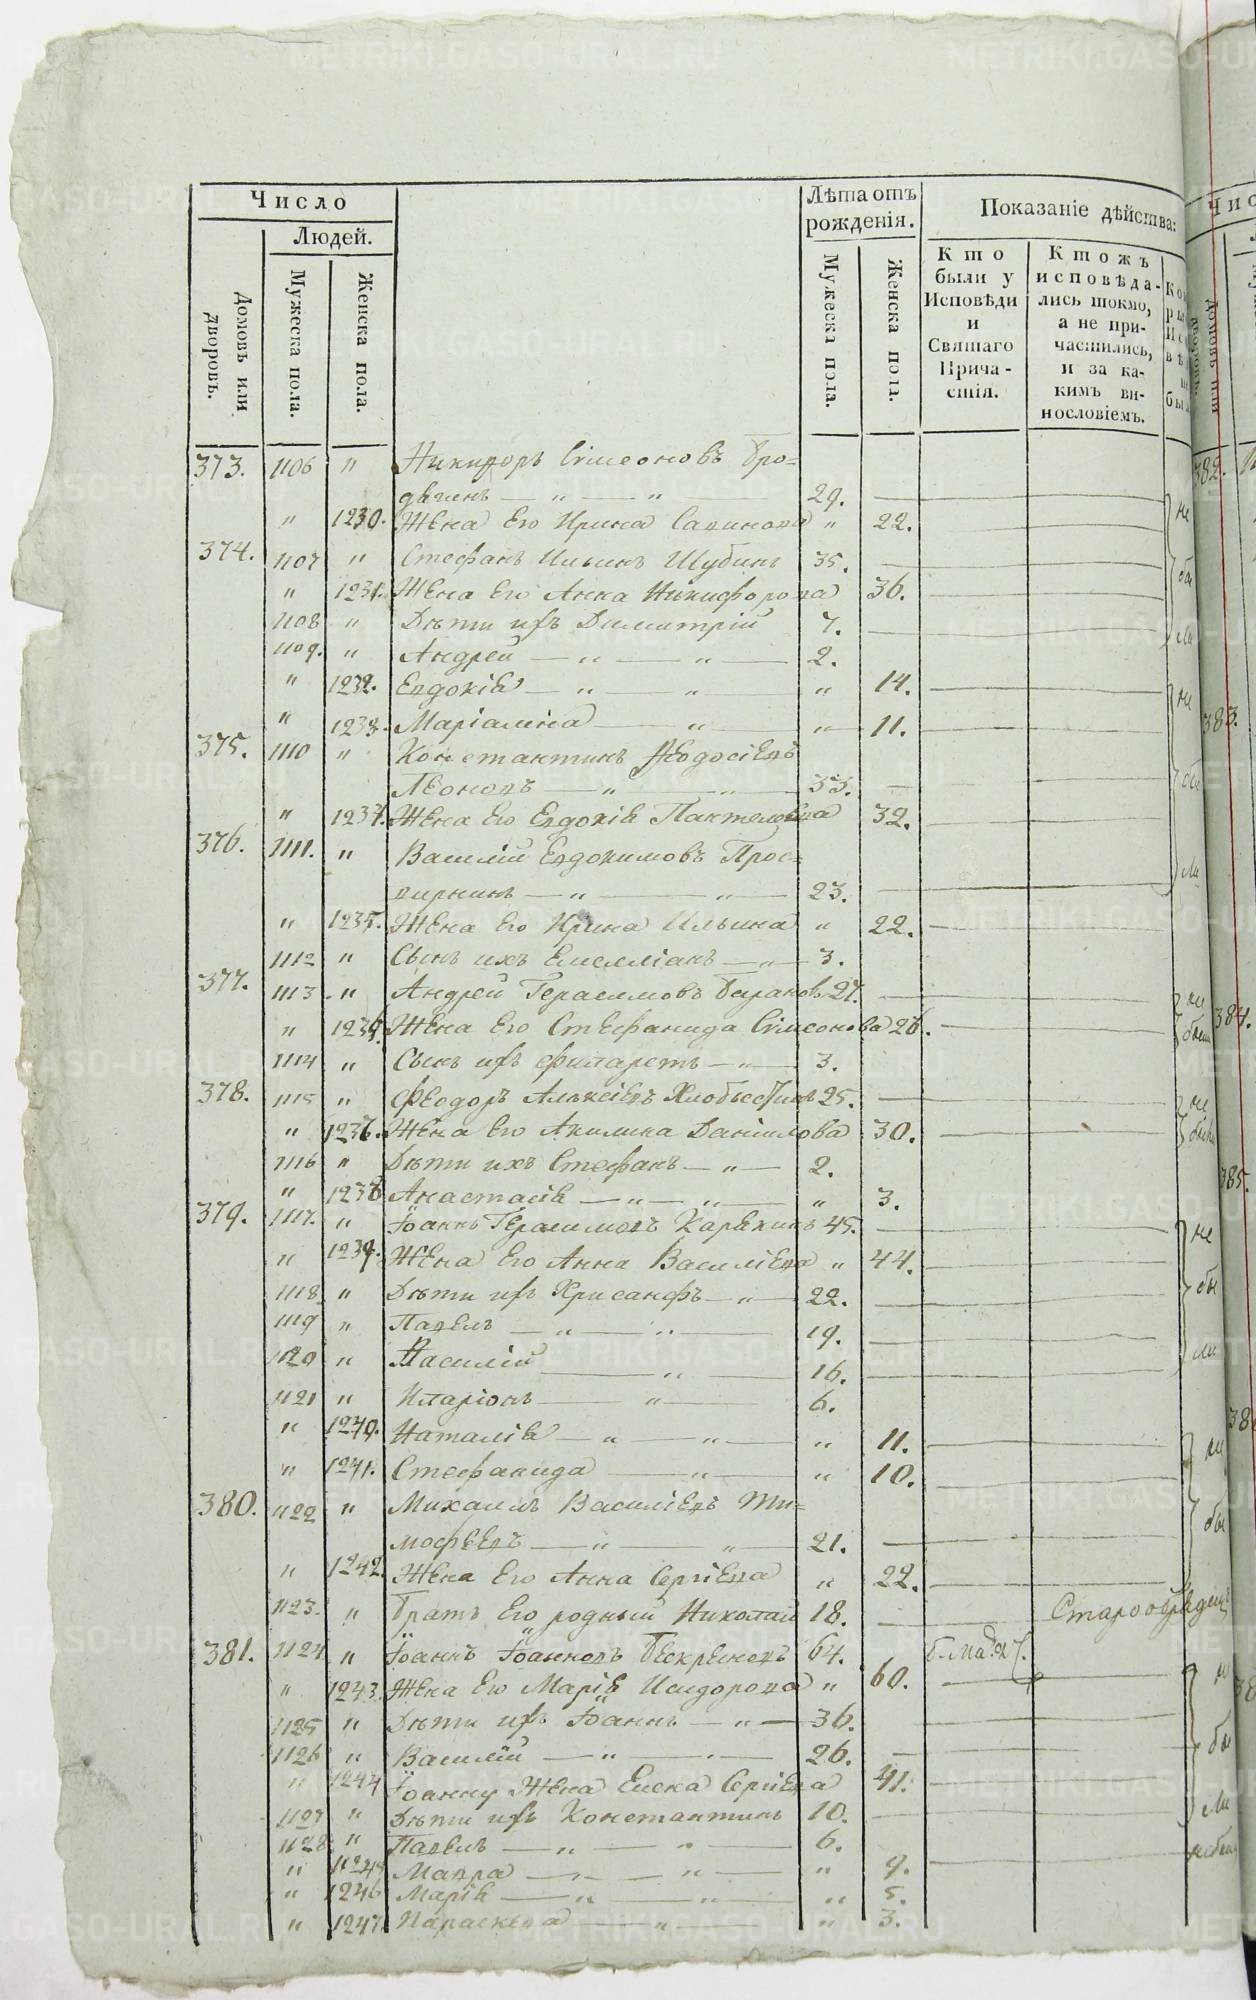 Число
Людей.
Домовъ или дворовъ.
Мужеска пола.
Женска пола.
Лѣта отъ рожденія.
Мужеска пола.
Женска пола.
Показаніе дѣйства:
Кто были у Исповѣди и Святаго Причастія.
Ктожъ исповѣдались токмо, а не причастились, и за какимъ винословіемъ.
373. 1106 " Никифоръ Сімеоновъ Бро=
29.
" 1230. Жена Его Ирина " 22.
374. 1107 " Стефанъ Ильинъ Шубинъ 35.
" 1231. Жена Его Анна Никифорова 36.
1108 " Дѣти ихъ Димитрій 7.
1109. " Андрей — " — " — 2.
" 1232. Евдокіѣ — " — " — " 14.
" 1233. — " — " 11.
375. 1110 " Константинъ Ѳеодосіевъ
Леоновъ — " — " — 33.
" 1234. Жена Его Евдокіѣ Пантелеева 32.
376. 1111. " Василій Евдокимовъ Прос=
вирнинъ — " — " — 23.
" 1235. Жена Его Ирина Ильина " 22.
1112 " Сынъ ихъ Емелліанъ — " — 3.
377. 1113 " Андрей Герасимовъ Барановъ 27.
" Жена Его Стефанида Сімеонова 26.
1114 " Сынъ ихъ Филаретъ — " — 3.
378. 1115 " Феодоръ Алексіевъ 25.
" Жена Его Акилина Даніилова 30.
1116 " Дѣти ихъ Стефанъ — " — 2.
" 1238 Анастасіѣ — " — " — " 3.
379. 1117. " Іоаннъ Герасимовъ Карѣкинъ 45.
" 1239. Жена Его Анна Василіева " 44.
1118 " Дѣти ихъ Хрисанфъ — " — 22.
1119 " Павелъ — " — " — 19.
1120 " Василій — " — 16.
1121 " Иларіонъ — " — 6.
" 1240. Наталіѣ — " — " — " 11.
" 1241. Стефанида — " — " 10.
380. 1122 " Михаилъ Василіевъ Ти=
мофѣевъ — " — " — 21.
" 1242. Жена Его Анна Сергіева " 22.
1123. " Братъ Его родный Николай 18. Старообрядецъ
381. 1124 " Іоаннъ Іоанновъ 64.
" 1243. Жена Его Маріѣ Исидорова " 60.
1125 " Дѣти ихъ Іоаннъ — " — 36.
1126 " Василій — " — " — 26.
" 1244 Іоанну Жена Елена Сергіева 41.
1127 " Дѣти ихъ Константинъ 10.
1128 " Павелъ — " — " — 6.
" 1245 Мавра — " — " — " 9.
" 1246 Маріѣ — " — " — " 5.
" 1247. Параскева — " — " 3.
не
бы
ли
METRIKI.GASO-URAL.RU